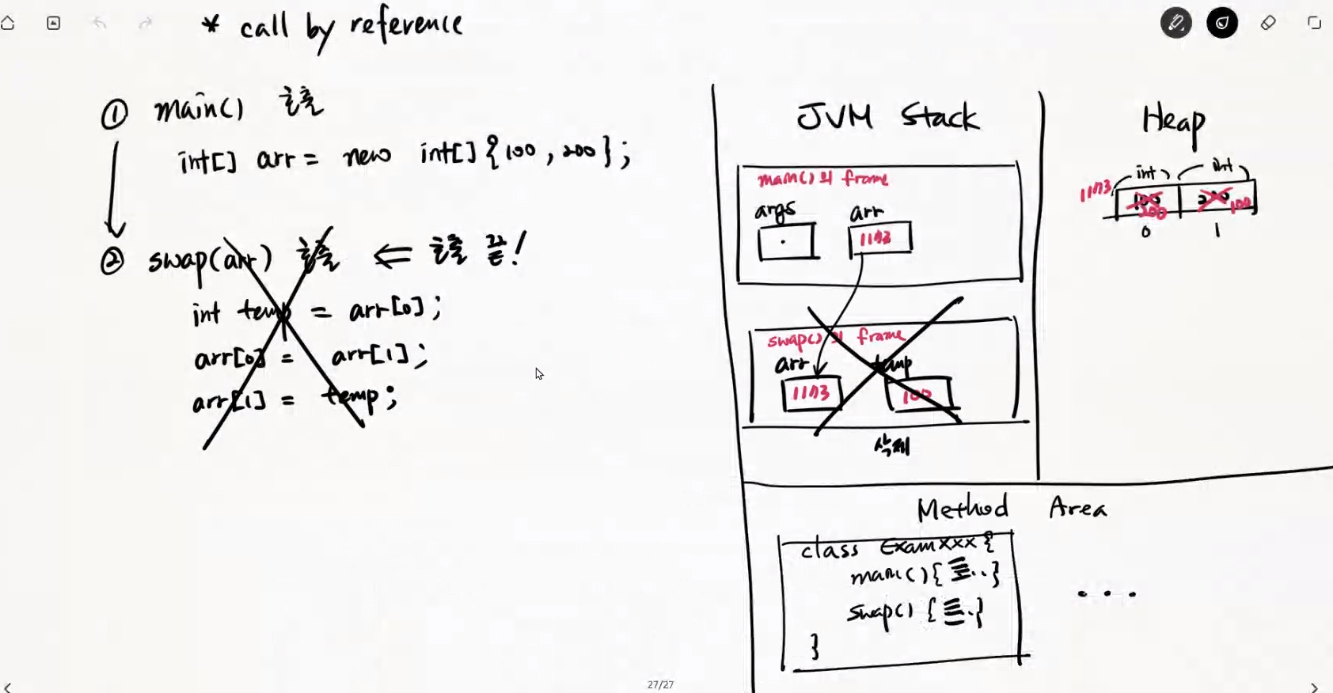 * call by reference
① main() 호출
int[] arr = new int[] {100, 200};
② swap(arr) 호출 ⇐ 호출 끝!
int temp = arr[0];
arr[0] = arr[1];
arr[1] = temp;
JVM Stack
main()의 frame
args arr
1173
swap()의 frame
arr temp
1173 100
삭제
Heap
int int
1173 100 200
200 100
0 1
Method Area
class Examxxx {
main() { .. }
swap() { .. }
}
...
27/27